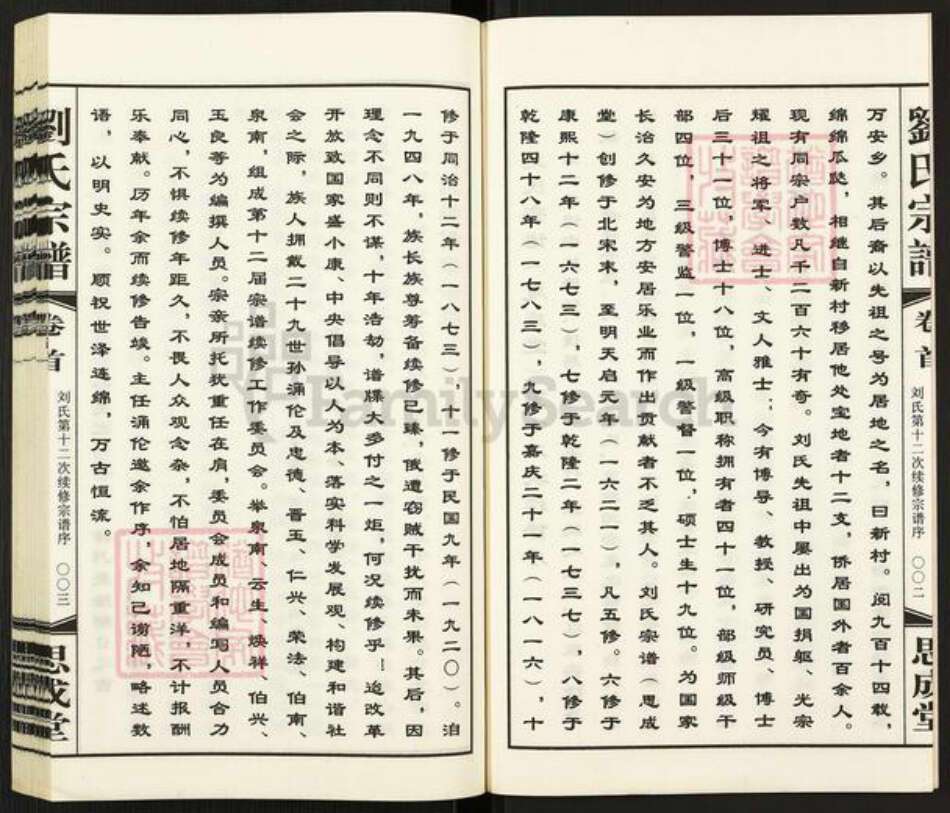 劉氏宗譜
卷首
刘氏第十二次续修宗谱序
〇〇二
思成堂
万安乡。其后裔以先祖之号为居地之名，曰新村。阅九百十四载，
绵绵瓜瓞，相继自新村移居他处宝地者十二支，侨居国外者百余人。
现有同宗户数凡千二百六十有奇。刘氏先祖中屡出为国捐躯、光宗
耀祖之将军、进士、文人雅士；今有博导、教授、研究员、博士
后三十一位，博士十八位，高级职称拥有者四十一位，部级师级干
部四位，三级警监一位，一级警督一位，硕士生十九位。为国家
长治久安为地方安居乐业而作出贡献者不乏其人。刘氏宗谱（思成
堂）创修于北宋末，至明天启元年（一六二一），凡五修。六修于
康熙十二年（一六七三），七修于乾隆二年（一七三七），八修于
乾隆四十八年（一七八三），九修于嘉庆二十一年（一八一六），十
修于同治十二年（一八七三），十一修于民国九年（一九二〇）。洎
一九四八年，族长族尊筹备续修已臻，俄遭窃贼干扰而未果。其后，因
理念不同则不谋，十年浩劫，谱牒大多付之一炬，何况续修乎！迨改革
开放致国家盛小康、中央倡导以人为本、落实科学发展观、构建和谐社
会之际，族人拥戴二十九世孙涌伦及忠德、晋玉、仁兴、荣法、伯南、
泉南，组成第十二届宗谱续修工作委员会。举泉南、云生、焕祥、伯兴、
玉良等为编撰人员。宗亲所托犹重任在肩，委员会成员和编写人员合力
同心，不惧续修年距久，不畏人众观念杂，不怕居地隔重洋，不计报酬
乐奉献。历年余而续修告竣。主任涌伦邀余作序，余知己谫陋，略述数
语，以明史实。顾祝世泽连绵，万古恒流。
劉氏宗譜
卷首
刘氏第十二次续修宗谱序
〇〇三
思成堂
FamilySearch